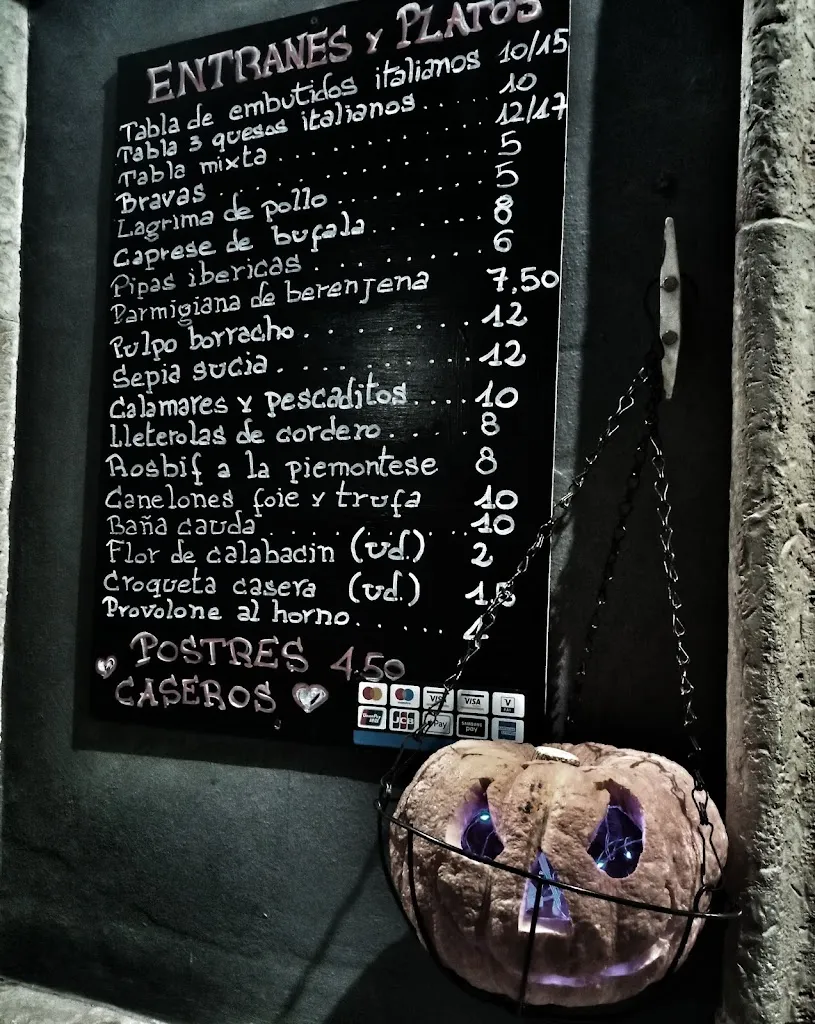 ENTRANES y PLATOS
Tabla de embutidos italianos 10/15
Tabla 3 quesos italianos..... 10
Tabla mixta.................. 12/17
Bravas................ 5
Lagrima de pollo........... 5
Caprese de bufala......... 8
Pipas ibericas............ 6
Parmigiana de berenjena 7,50
Pulpo borracho.......... 12
Sepia sucia............ 12
Calamares y pescaditos.... 10
Lleterolas de cordero.... 8
Rosbif a la piemontese 8
Canelones foie y trufa 10
Baña cauda.............. 10
Flor de calabacin (ud.) 2
Croqueta casera (ud.) 1,5
Provolone al horno.......
POSTRES 4,50
CASEROS
VISA VISA V PAY
UnionPay JCB Pay SAMSUNG pay